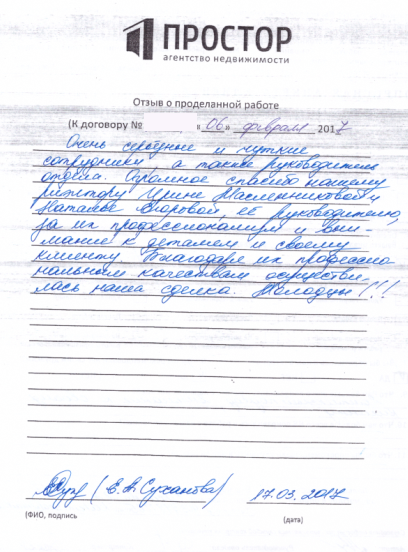 ПРОСТОР
агентство недвижимости
Отзыв о проделанной работе
(К договору № «06» февраля 2017
Очень серьезные и чуткие
сотрудники, а также руководитель
отдела. Огромное спасибо нашему
риэлтору Ирине Масленниковой и
Наталье Егоровой, ее руководителю,
за их профессионализм и вни-
мание к деталям и своему
клиенту. Благодаря их профессио
нальным качествам осуществи
лась наша сделка. Молодцы!!!
(Е.А. Суханова) 17.03.2017
(ФИО, подпись (дата)